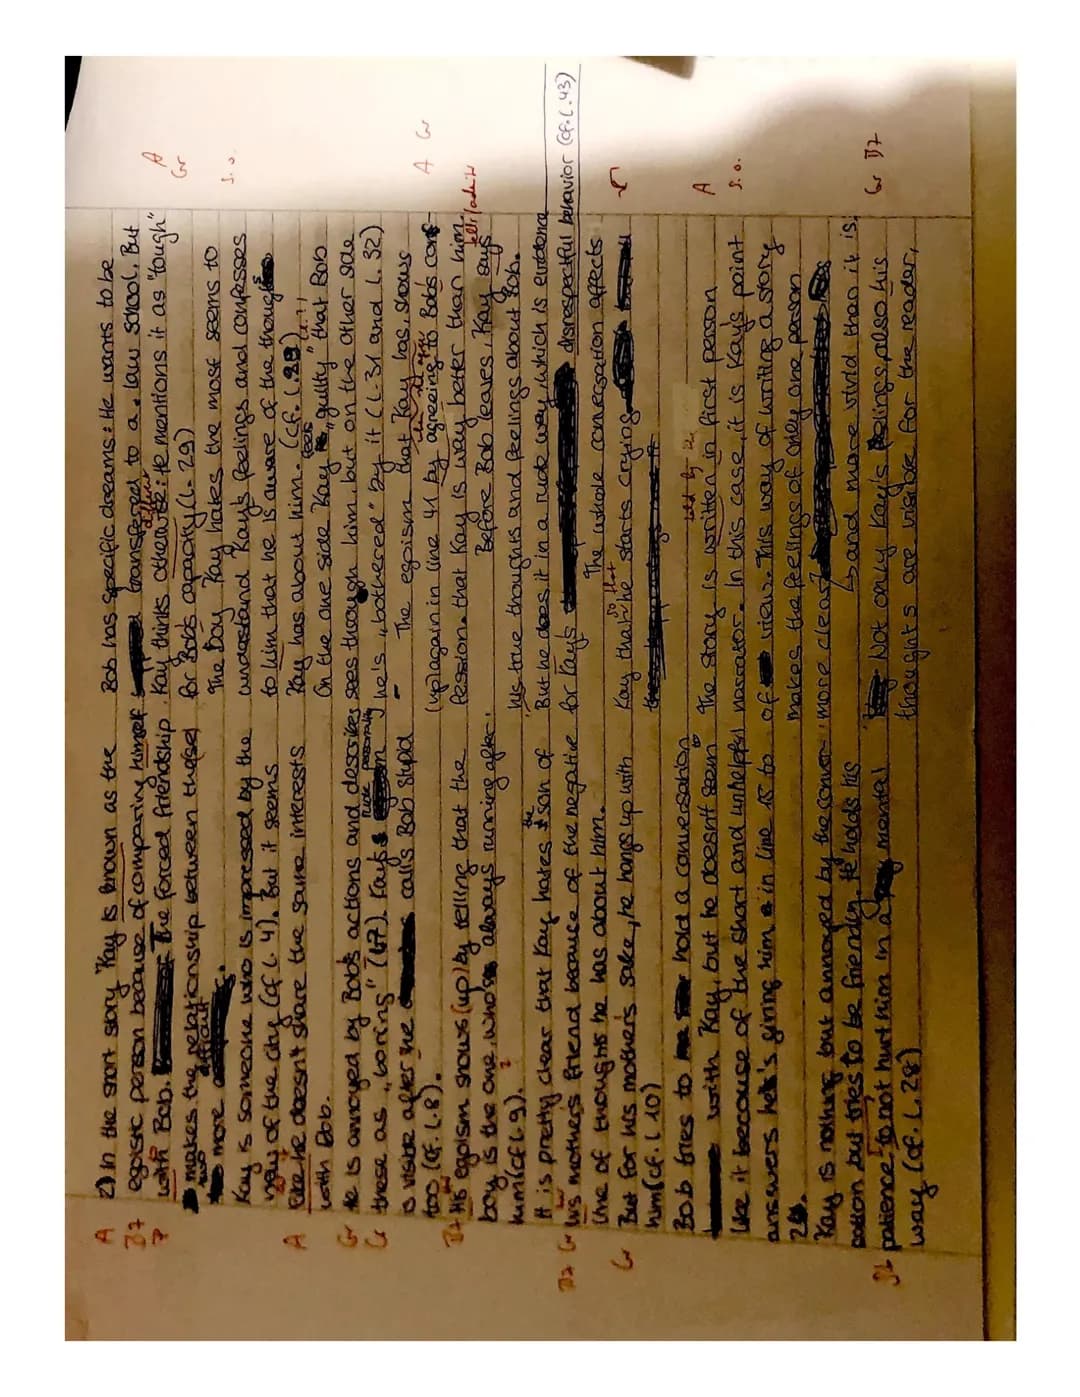 2) In the short story "Kay is known as the
egoistic person because of comparing himself
with Bob. The forced friendship
makes the relationship between these
two more difficult.
Kay is someone who is impressed by the
view of the city (cf. l. 4). But it seems
like he doesn't share the same interests
with Bob.
He is annoyed by Bob's actions and describes
these as „boring" (l.7). Kay's rude
is visible after he calls Bob stupid
too (cf. l.8).
His egoism shows (up) by telling that the
boy is the one, who's always running after
him (cf l. 9).
It is pretty clear that Kay hates the son of
his mothers friend because of the negative
line of thoughts he has about him.
But for his mother's sake, he hangs up with
him (cf. l 10)
Bob tries to hold a conversation
with Kay, but he doesn't seem to
like it because of the short and unhelpful
answers he's giving him in line 15 to
20.
Kay is nothing but annoyed by the conver-
sation but tries to be friendly. He holds his
patience to not hurt him in a mental
way (cf. l. 28)
Bob has specific dreams: He wants to be
transfered to a law school. But
Kay thinks otherwise: He mentions it as "tough"
for Bob's capacity (l. 29)
The Boy Kay hates the most seems to
understand Kay's feelings and confesses
to him that he is aware of the thoughts
Kay has about him. (cf. l. 29)
On the one side Kay feels „guilty" that Bob
sees through him, but on the other side
he is „bothered" by it (l. 31 and l. 32)
The egoism that Kay has, shows
(up) again in line 41 by agreeing to Bob's con-
fession, that Kay is way better than him.
Before Bob leaves, Kay says
his true thoughts and feelings about Bob.
But he does it in a rude way, which is evidence
for Kay's disrespectful behavior (cf. l. 43)
The whole conversation affects
Kay that he starts crying
The story is written in first person
narrator. In this case, it is Kay's point
of view. This way of writing a story
makes the feelings of only one person
more clear and more vivid than it is.
Not only Kay's feelings, also his
thoughts are visible for the reader,
A
Bz
A
Gr
Gr
Bz
Bz Gr
Gr
A
Gr
s.o.
A Gr
tells/admits
A
s.o.
Gr Bz